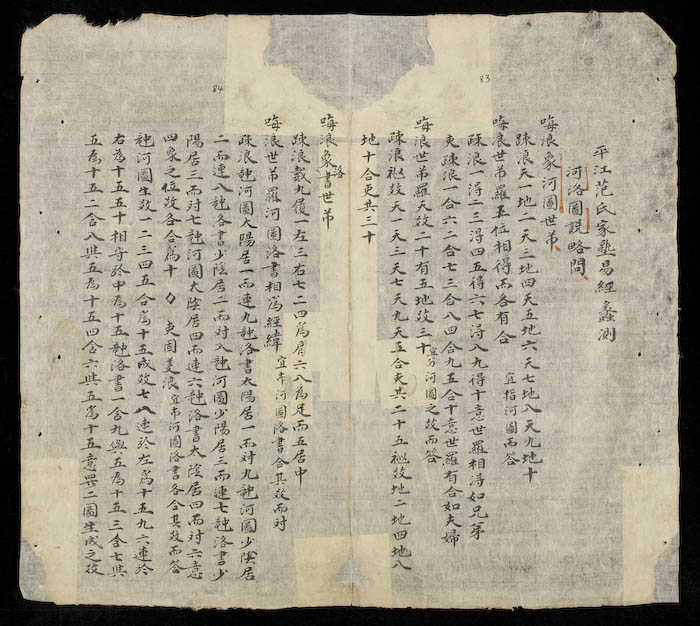 平江范氏家塾易經蠡測
河洛圖說略問
嗨浪象河圖世帇
疎浪天一地二天三地四天五地六天七地八天九地十
嗨浪世帇羅五位相得而各有合 宜指河圖而答
疎浪一得二三得四五得六七得八九得十意世羅相得如兄弟
吏疎浪一合六二合七三合八四合九五合十意世羅有合如夫婦
嗨浪世帇羅天数二十有五地数三十 宜分河圖之数而答
疎浪 数天一天三天七天九天五合吏其二十五 数地二地四地八
地十合吏其三十
嗨浪象洛書世帇
疎浪戴九履一左三右七二四為肩六八為足而五居中
嗨浪世帇羅河圖洛書相為經緯 宜 河圖洛書合其数而対
疎浪 河圖太陽居一而連九 洛書太陽居一而対九 河圖少陰居
二而連八 洛書少陰居二而対八 河圖少陽居三而連七 洛書少
陽居三而対七 河圖太陰居四而連六 洛書太陰居四而対六意
四象之位数各合為十 吏固 浪 宜 河圖洛書各合其数而答
河圖生数一二三四五合為十五成数七八連於左為十五九六連於
右為十五五十相守於中為十五 洛書一合九與五為十五三合七與
五為十五二合八與五為十五四合六與五為十五意 二圖生成之数
83
84